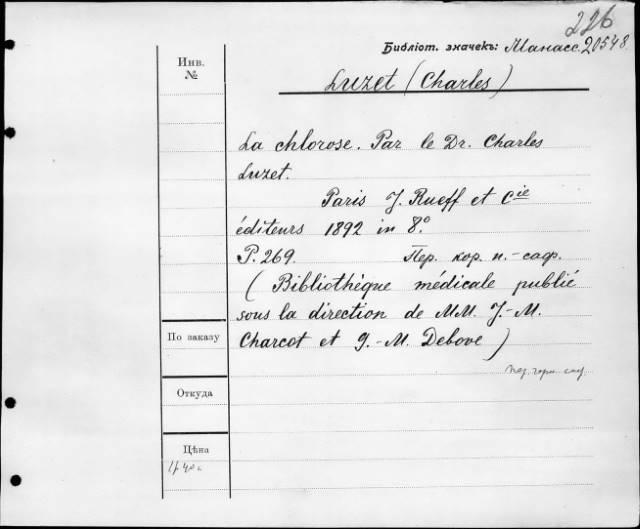 226
Библіот. значекъ: Манасс. 20548.
Инв.
№
Luzet (Charles)
La chlorose. Par le Dr. Charles
Luzet.
Paris J. Rueff et Cie
éditeurs 1892 in 8.°
P. 269. Пер. кор. п.-саф.
(Bibliothèque médicale publié
sous la direction de MM. J.-M.
Charcot et G.-M. Debove)
По заказу
Откуда
Цѣна